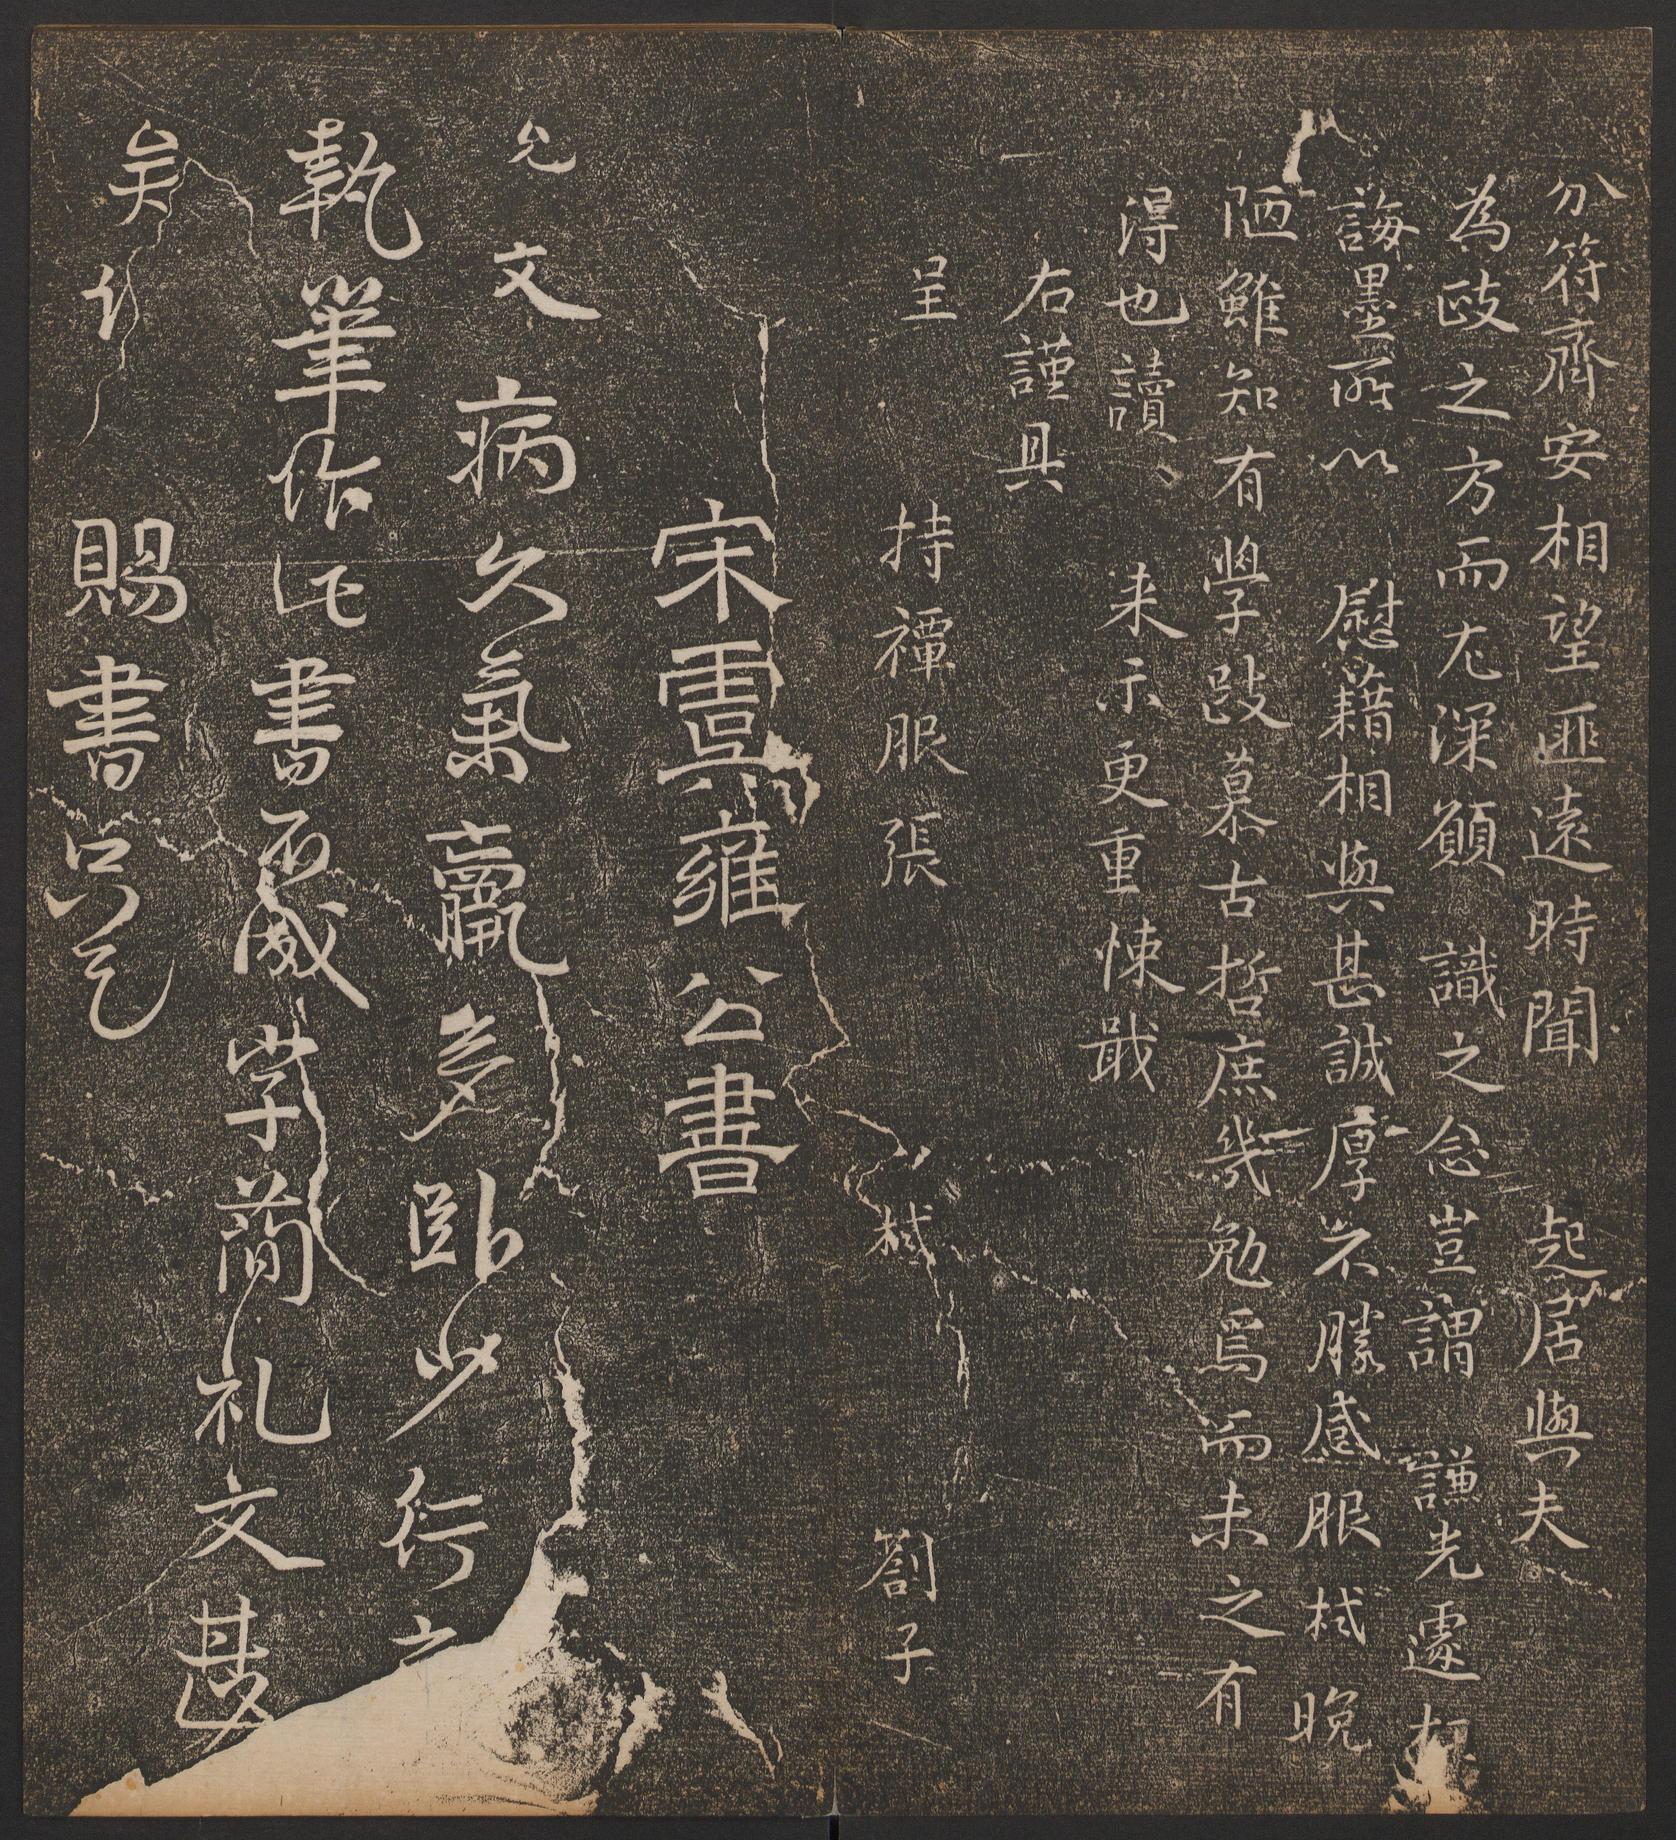 分符齊安相望匪遠時聞　起居與夫
為政之方而尤深願　識之念豈謂　謙光遽枉
誨墨所以　慰藉相與甚誠厚不勝感服栻晚
陋雖知有學敢慕古哲庶幾勉焉而未之有
得也讀　来示更重悚戢
右謹具
呈　持禫服張　栻　劄子
宋虞雍公書
允文病久氣羸多卧少行
執筆作此書至學簡札文甚
矣　賜書